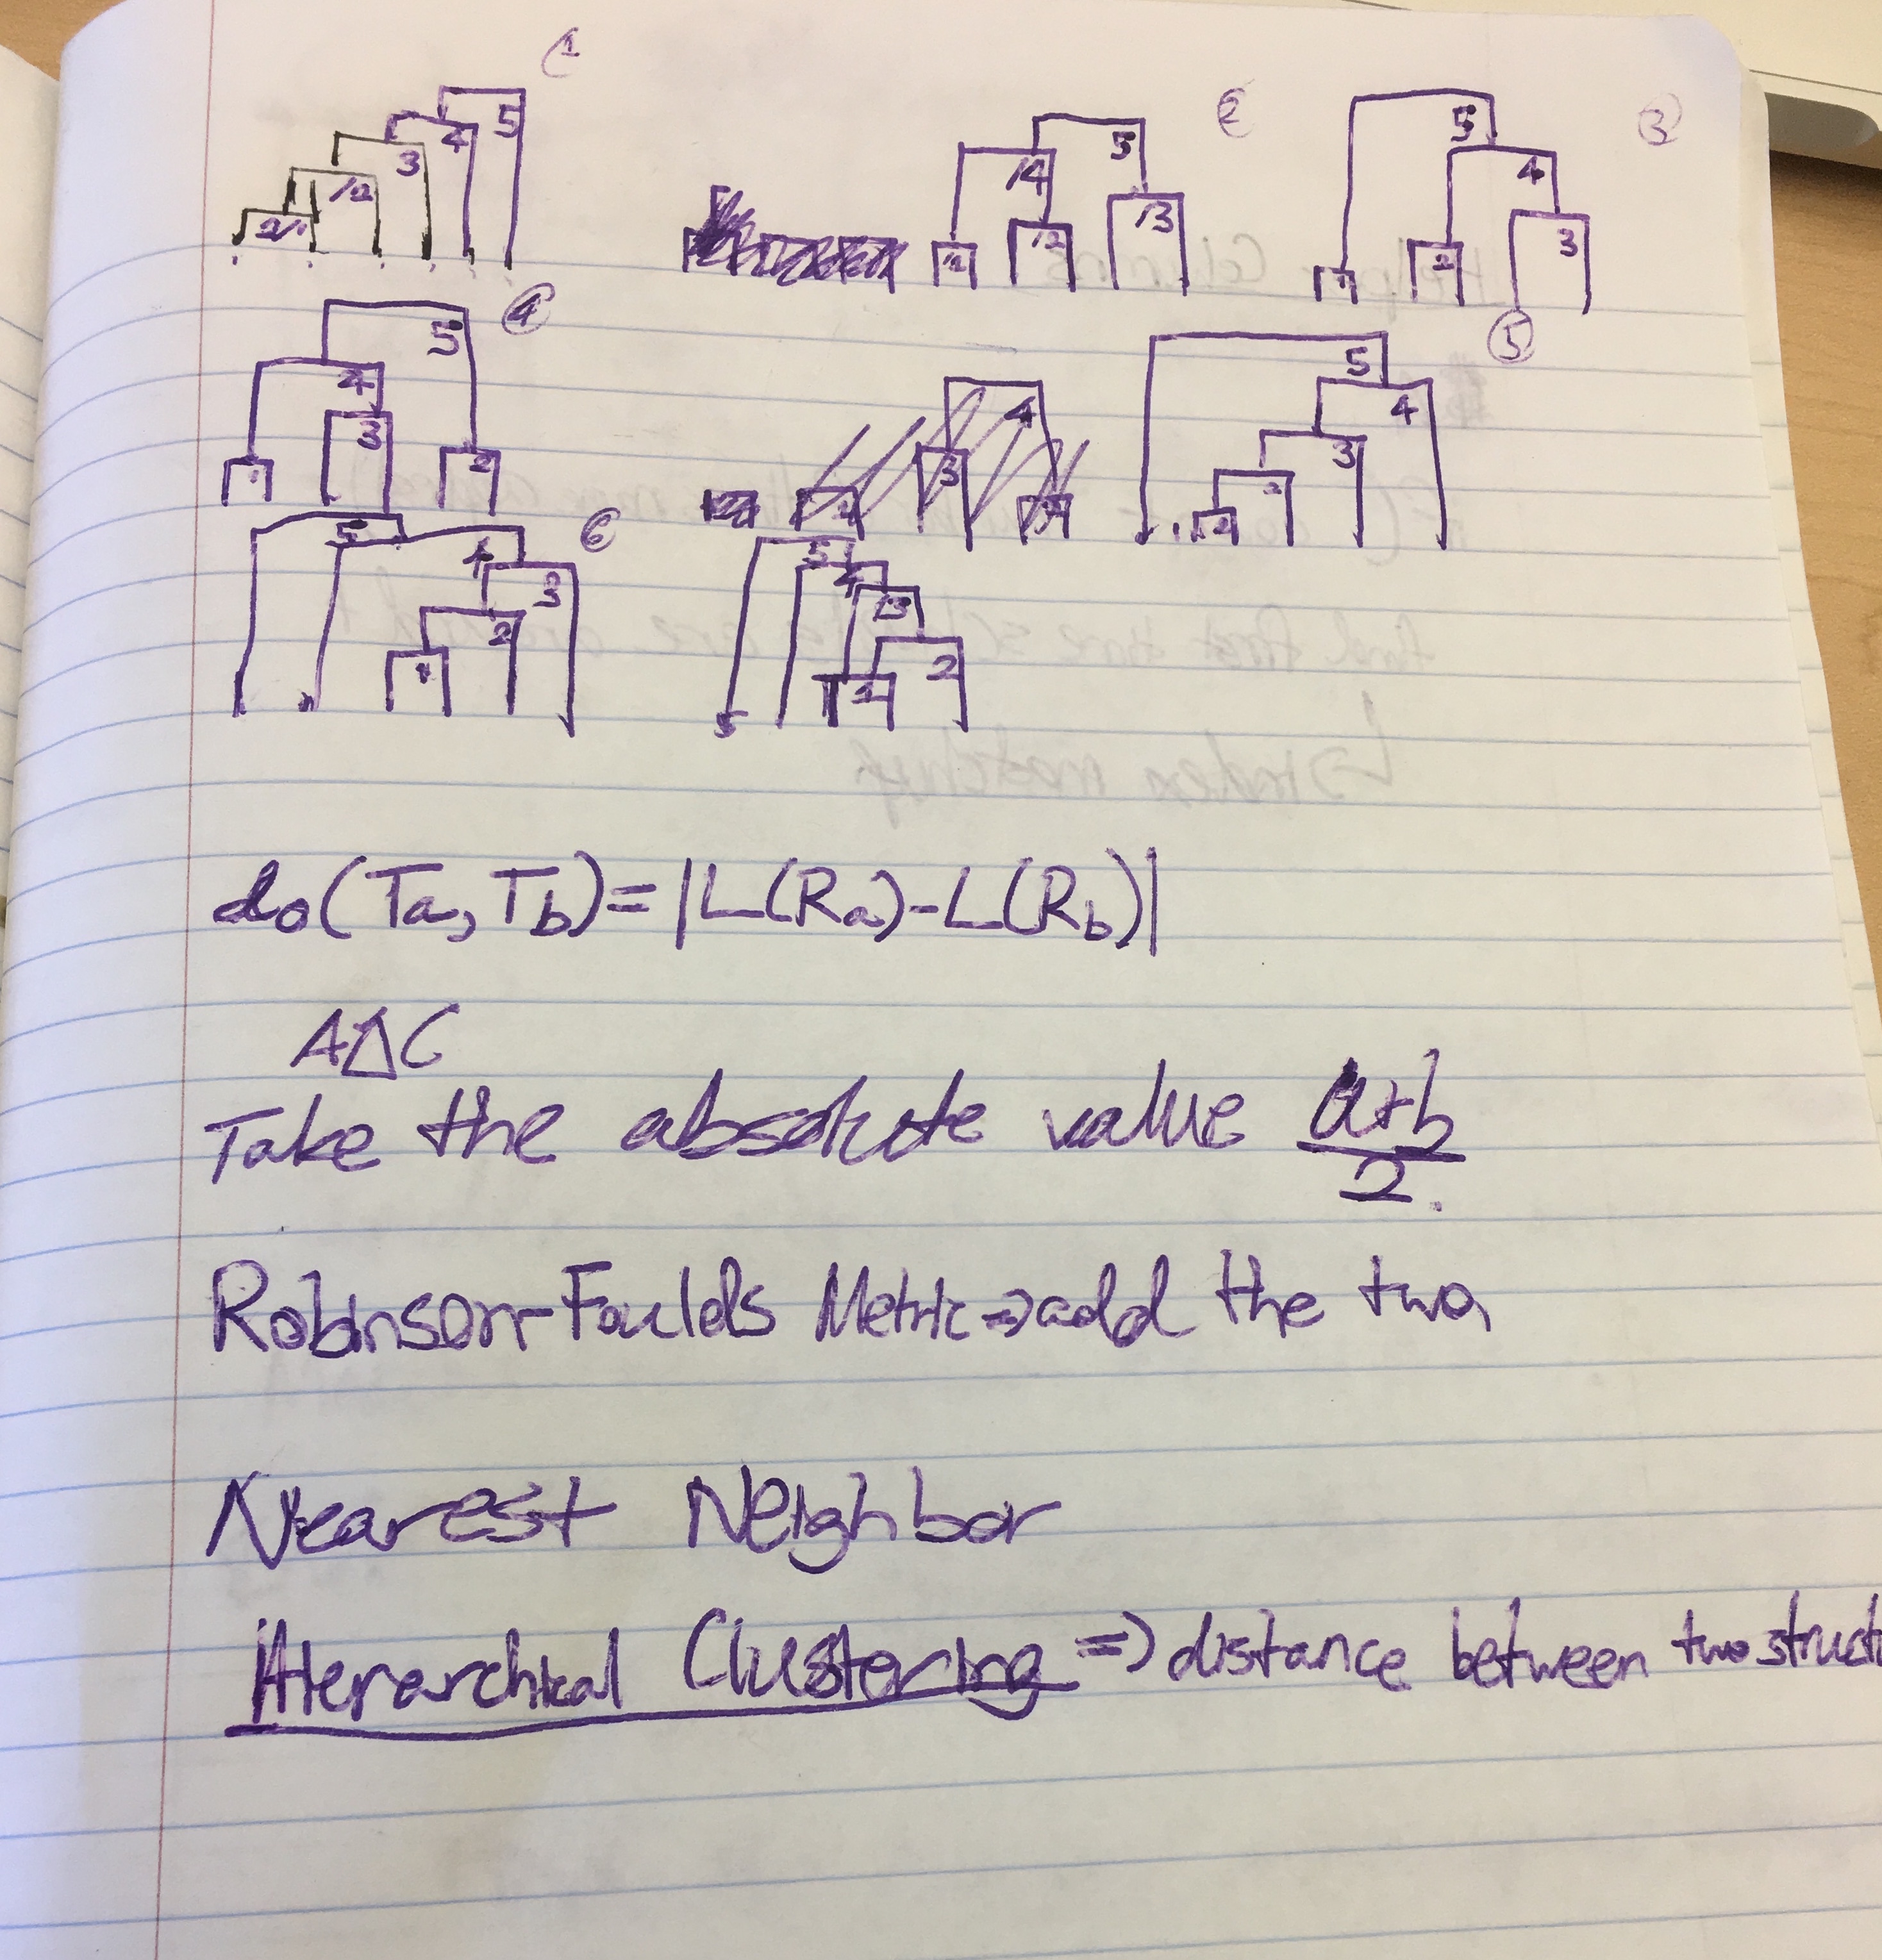 1
5
4
3
2
1
2
5
4
2
3
1
3
5
4
3
2
1
4
5
4
3
1
2
4
3
5
5
4
3
2
1
6
5
4
3
2
1
5
4
3
2
1
do(Ta, Tb) = |L(Ra) - L(Rb)|
AΔC
Take the absolute value a+b/2.
Robinson-Foulds Metric => add the two
Nearest Neighbor
Hierarchical Clustering => distance between two struct